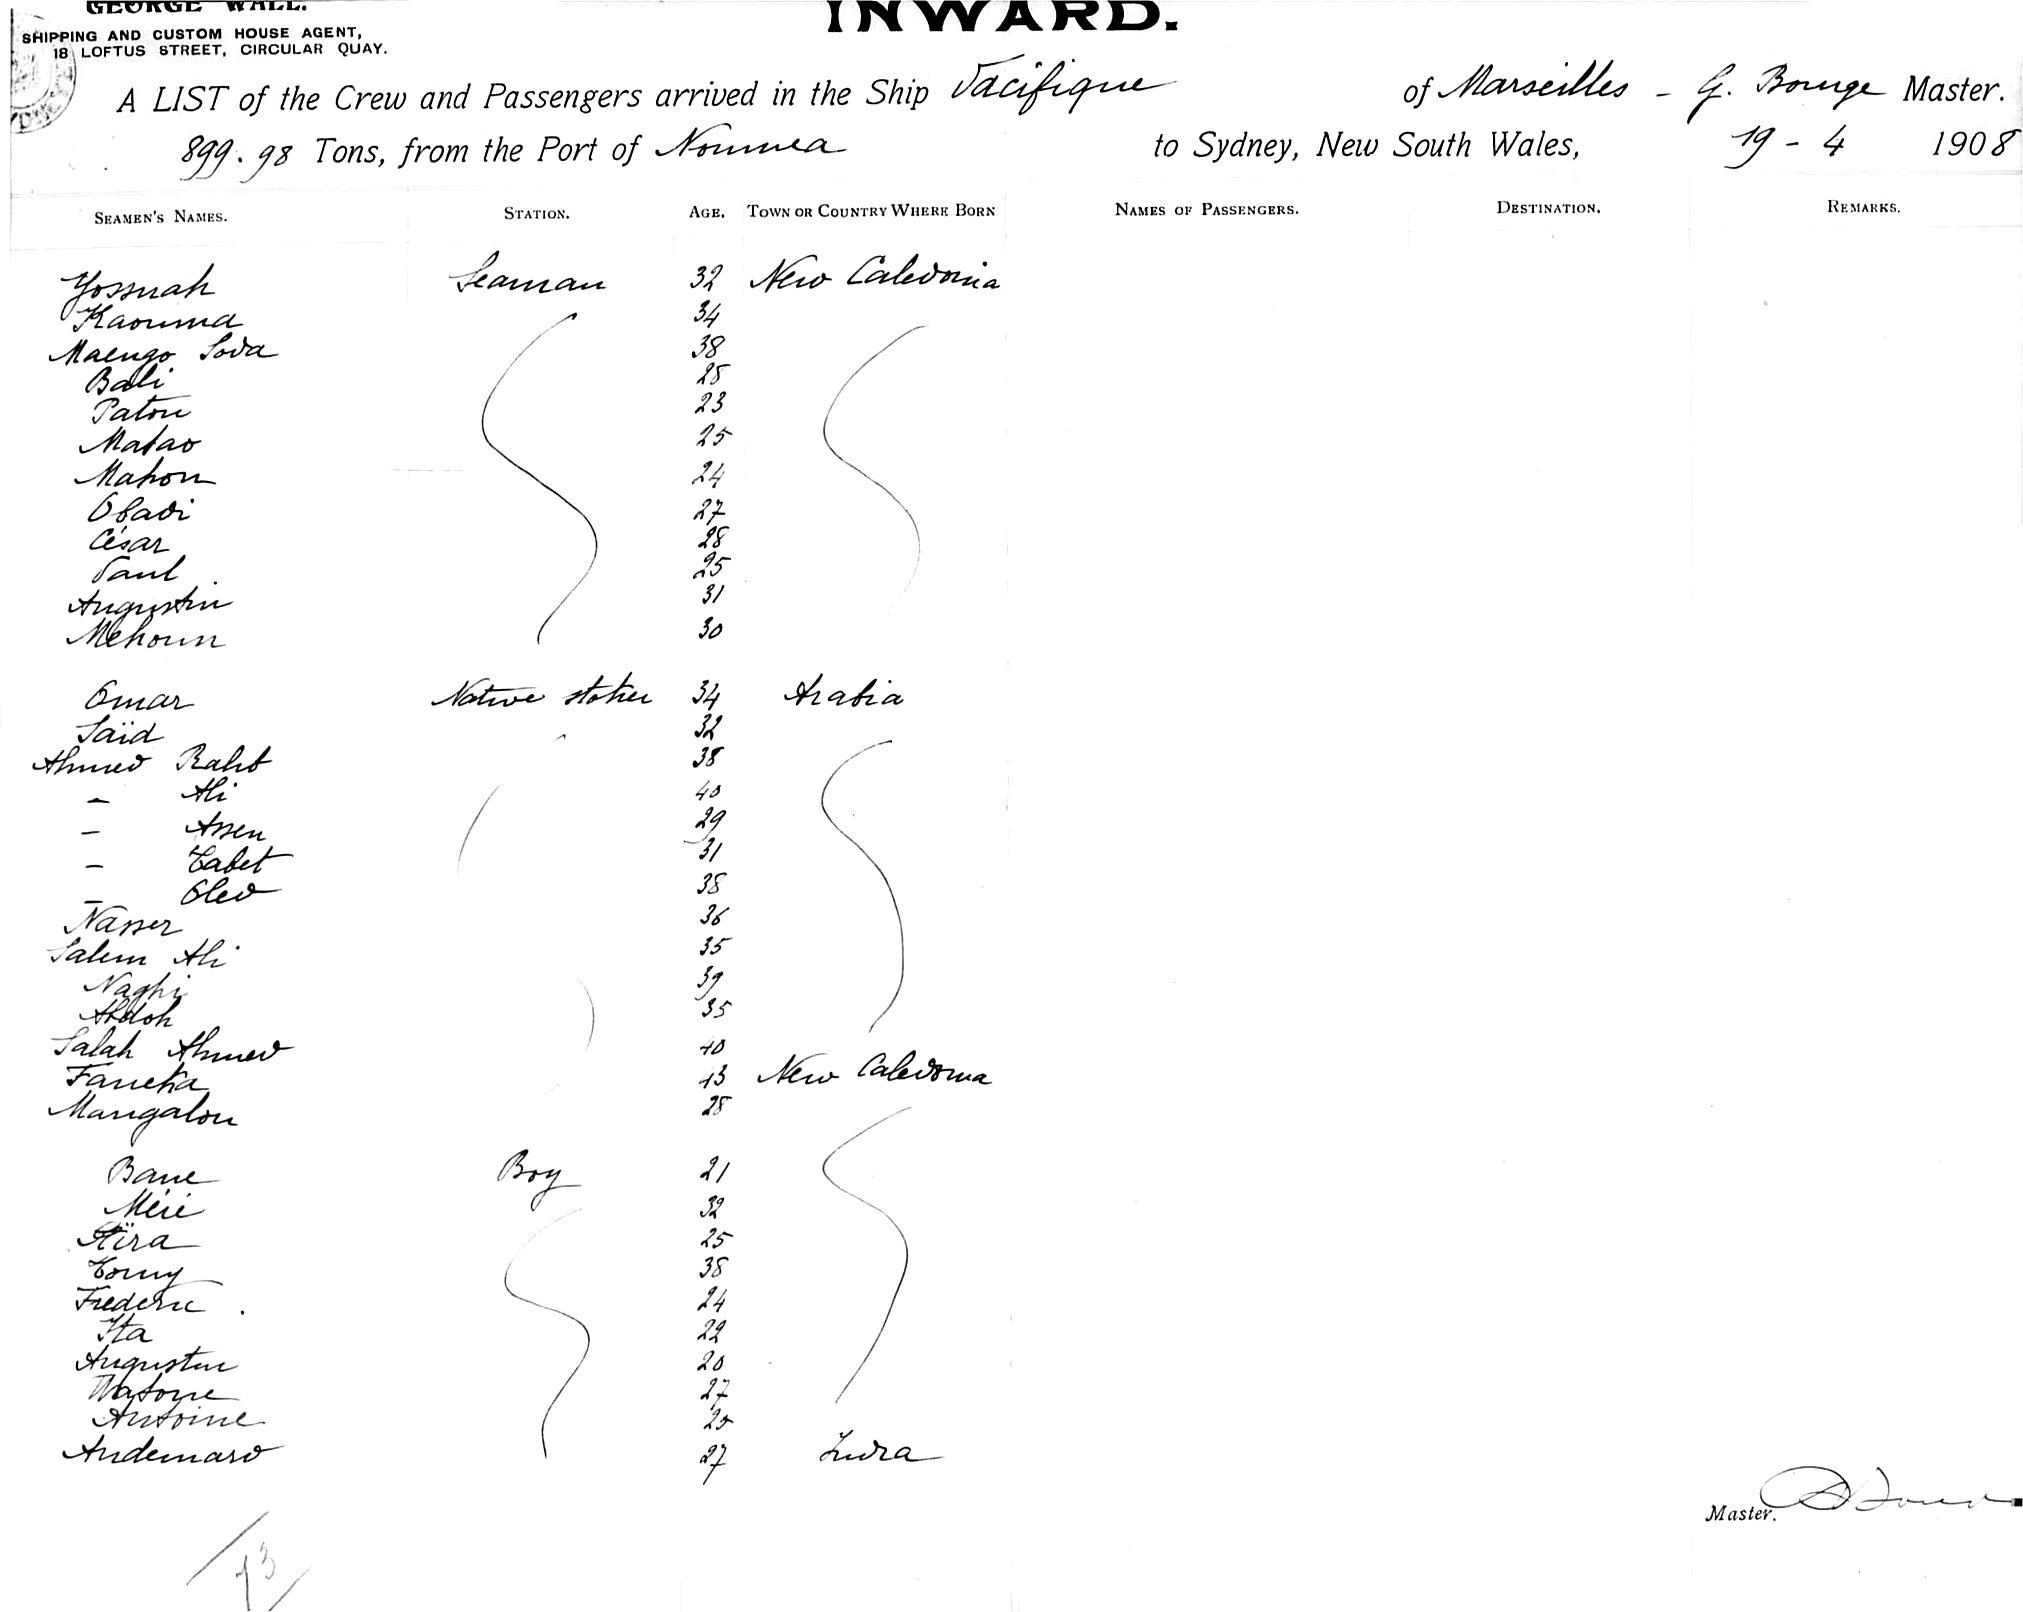 GEORGE WALL.
SHIPPING AND CUSTOM HOUSE AGENT,
18 LOFTUS STREET, CIRCULAR QUAY.
INWARD.
A LIST of the Crew and Passengers arrived in the Ship Pacifique of Marseilles - G. Bouge Master.
899.98 Tons, from the Port of Noumea to Sydney, New South Wales, 19 - 4 1908
SEAMEN'S NAMES. STATION. AGE. TOWN OR COUNTRY WHERE BORN NAMES OF PASSENGERS. DESTINATION. REMARKS.
Yossuah Seaman 32 New Caledonia
Kaouma 34
Maengo Soda 38
Bali 28
Patou 23
Matao 25
Mahou 24
Obadi 27
César 28
Paul 25
Augustin 31
Mehoun 30
Omar Native stoker 34 Arabia
Saïd 32
Ahmed Raht 38
- Ali 40
- Assen 29
- Tabet 31
- Oled 38
Nasser 36
Salem Ali 35
Naghi 39
Abdoh 35
Salah Ahmed 40
Faneka 43 New Caledonia
Mangalou 28
Bane Boy 21
Méré 32
Aïra 25
Tomy 38
Frederic 24
Ita 22
Augustin 20
Watone 27
Antoine 25
Andemard 27 India
Master.
43